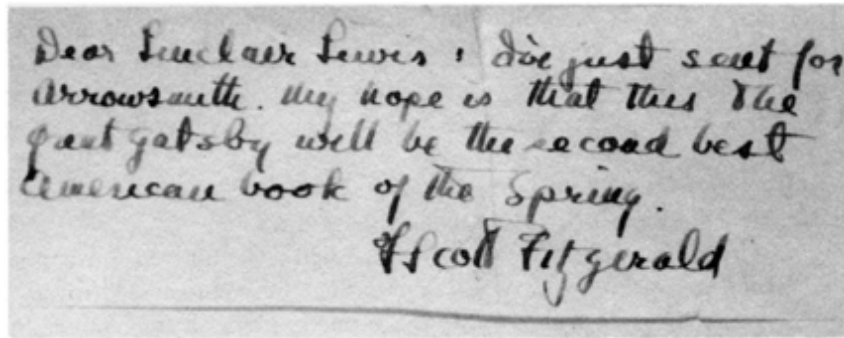 Dear Sinclair Lewis: I've just sent for
Arrowsmith. My hope is that this The
great Gatsby will be the second best
American book of the Spring.
F Scott Fitzgerald